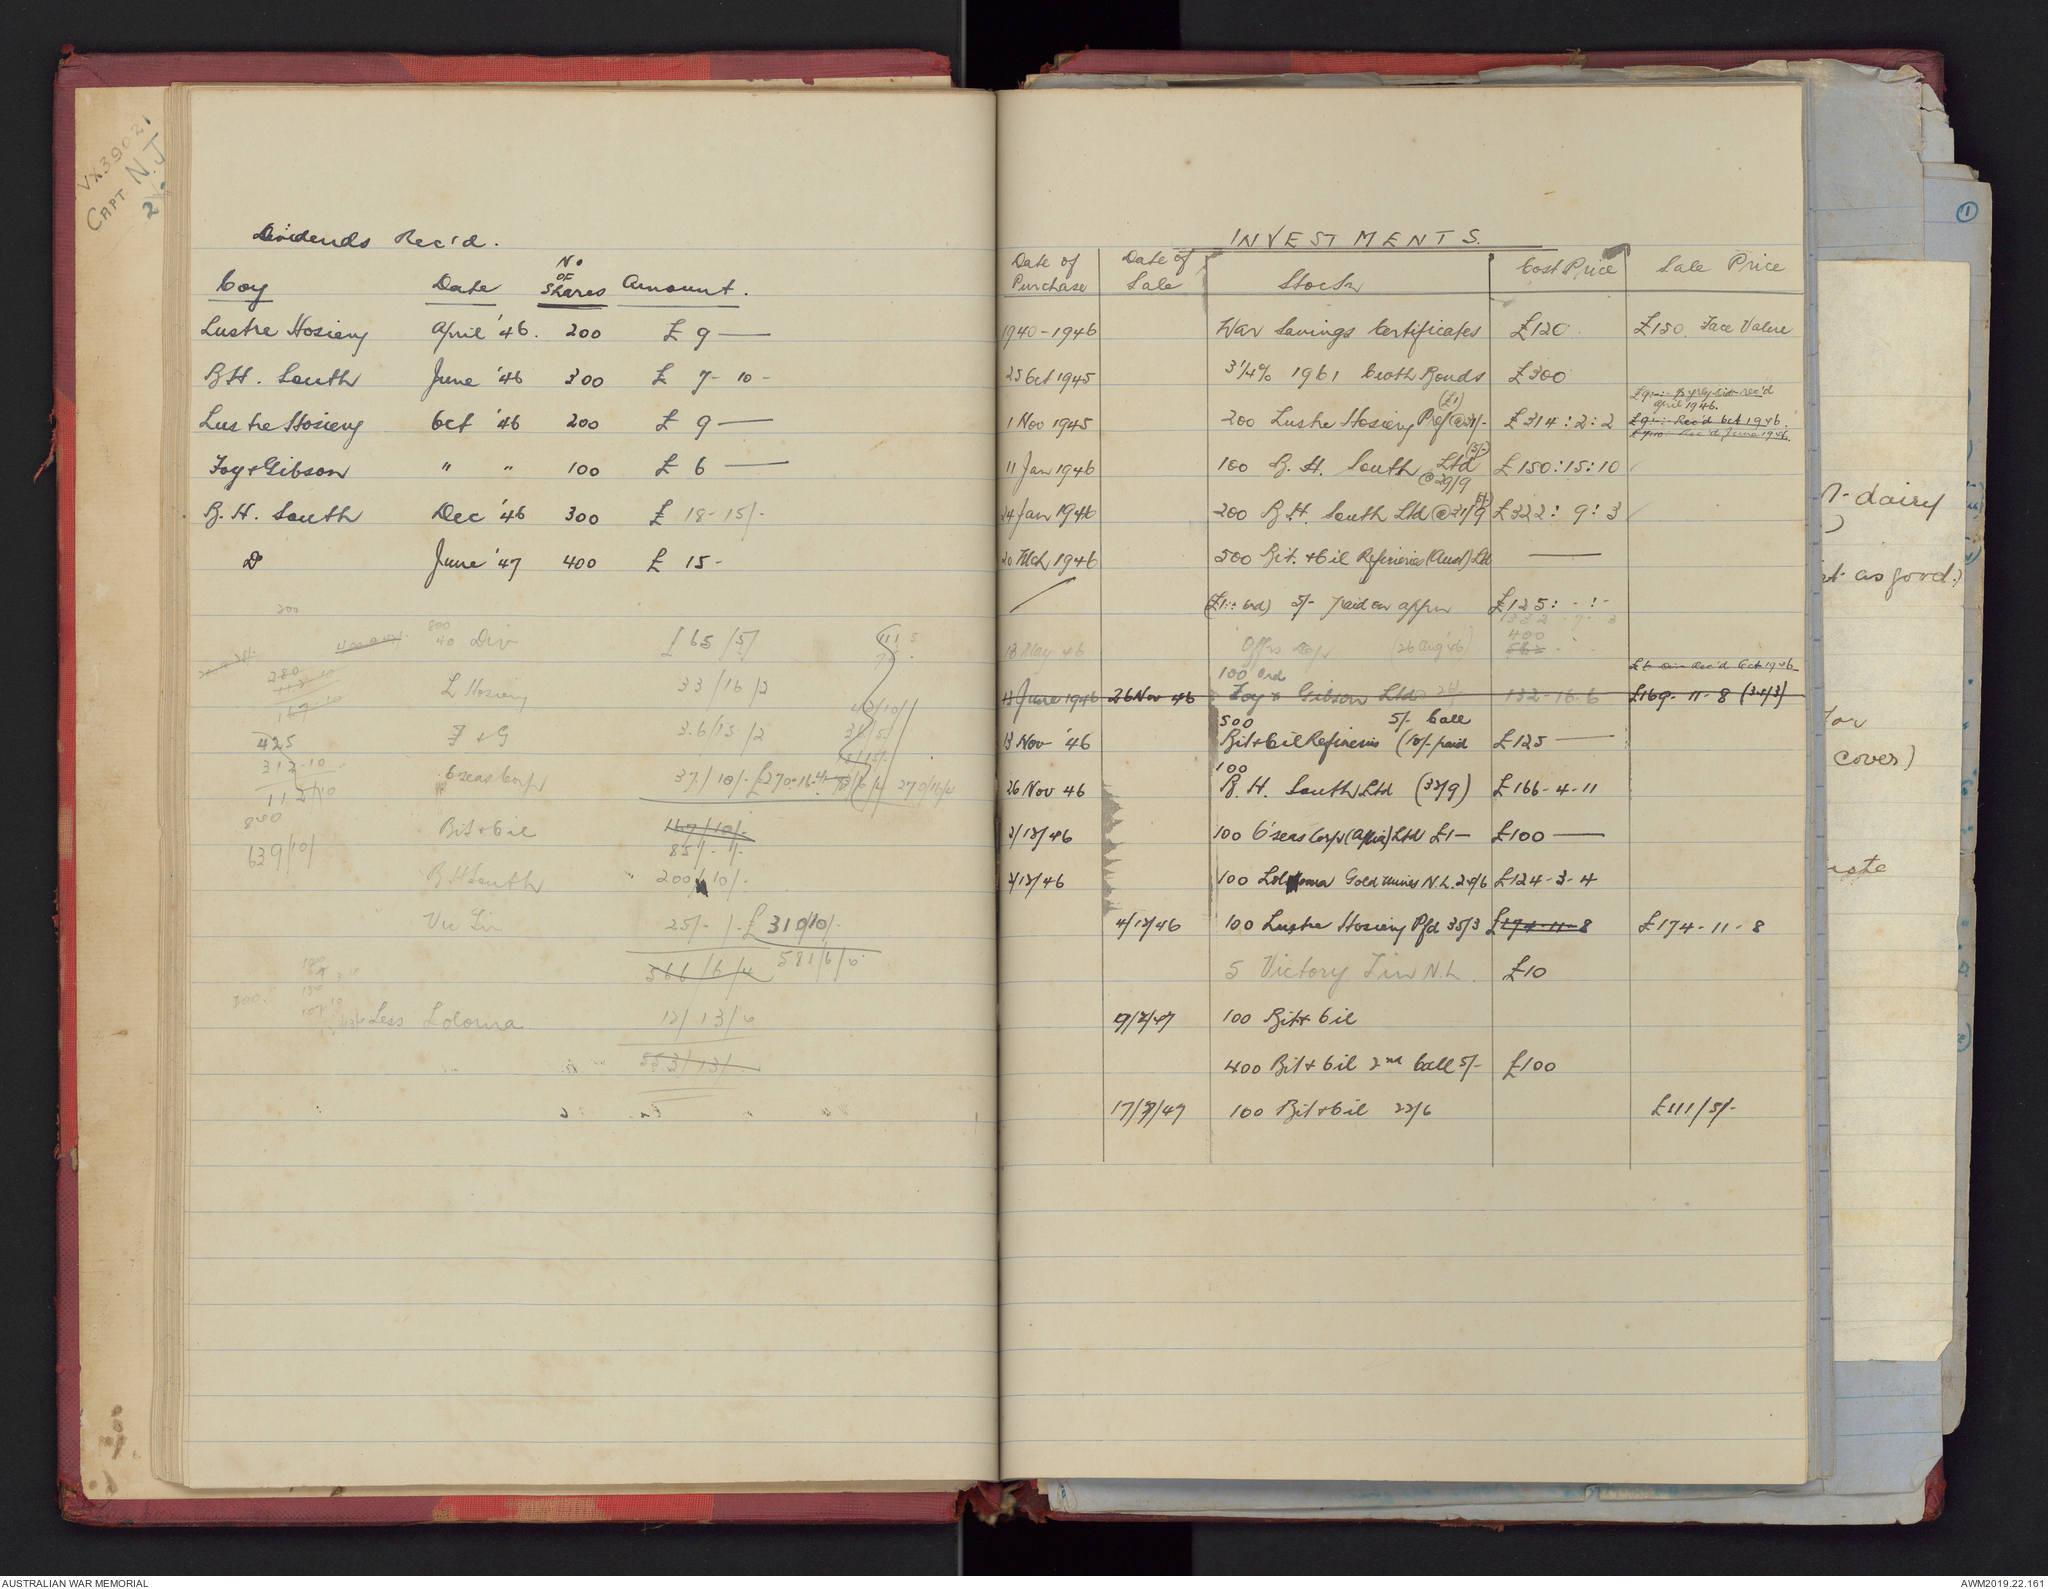 VX39021
CAPT N.J
Dividends Rec'd.
Coy Date No OF Shares Amount.
Lustre Hosiery April '46. 200 £ 9 —
B.H. South June '46 300 £ 7-10-
Lustre Hosiery Oct '46 200 £ 9 —
Foy & Gibson " " 100 £ 6 —
B.H. South Dec '46 300 £ 18-15/-
Do June '47 400 £ 15-
200
800
40 Div £65/5/
L Hosiery 33/16/2
F & G 36/13/2
425
312-10 O'seas Corp 37/10/- £270-16-4 270/16/4
112/10
800 Bit & Oil 167/10/-
85/-/-
639/10/
B H South 200/10/-
Vic Tin 25/-/- £310/10/-
566/6/4 581/6/
Less Loloma 12/13/
553/13/
INVESTMENTS.
Date of Purchase Date of Sale Stock Cost Price Sale Price
1940-1946 War Savings Certificates £120. £150. Face Value
25 Oct 1945 3¼% 1961 C'wth Bonds £300
£9:-:- rec'd April 1946.
1 Nov 1945 200 Lustre Hosiery Pref (£1) @31/- £314:2:2 £9:-:- Rec'd Oct 1946.
£7:10:- Rec'd June 1946.
11 Jan 1946 100 B.H. South Ltd (5/-) @29/9 £150:15:10
24 Jan 1946 200 B.H. South Ltd (5/-) @31/9 £322:9:3
20 Mch 1946 500 Bit. & Oil Refineries (Aust) Ltd —
(£1:: Ord) 5/- paid on appn £125:-:-
332-7-3
13 May 46 Offrs Dep (26 Aug '46) 400
100 Ord £6 Div Rec'd Oct 1946
13 June 1946 26 Nov 46 Foy & Gibson Ltd 26/- 132-16-6 £169-11-8 (34/3)
500 5/- Call
13 Nov '46 Bit & Oil Refineries (10/- paid £125 —
100
26 Nov 46 B.H. South Ltd (32/9) £166-4-11
2/12/46 100 O'seas Corp (A/sia) Ltd £1— £100 —
2/12/46 100 Loloma Gold Mines N.L. 24/6 £124-3-4
4/12/46 100 Lustre Hosiery Pfd 35/3 £174-11-8 £174-11-8
5 Victory Tin N.L. £10
19/2/47 100 Bit & Oil
400 Bit & Oil 2nd Call 5/- £100
17/3/47 100 Bit & Oil 22/6 £111/5/-
1
dairy
as good.)
for
cover)
AUSTRALIAN WAR MEMORIAL
AWM2019.22.161